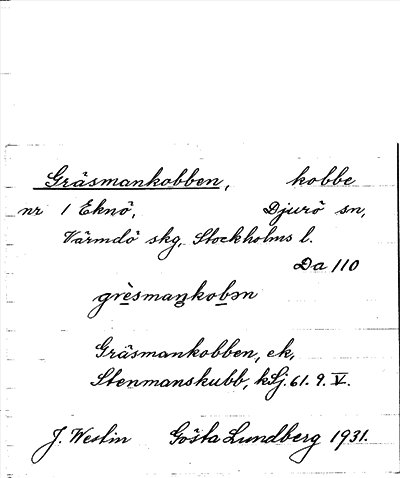 Gräsmankobben, kobbe
nr 1 Eknö, Djurö sn,
Värmdö skg, Stockholms l.
Da 110
grèsmaŋkobən
Gräsmankobben, ek,
Stenmanskubb, kSj. 61. 9. V.
J. Westin Gösta Lundberg 1931.